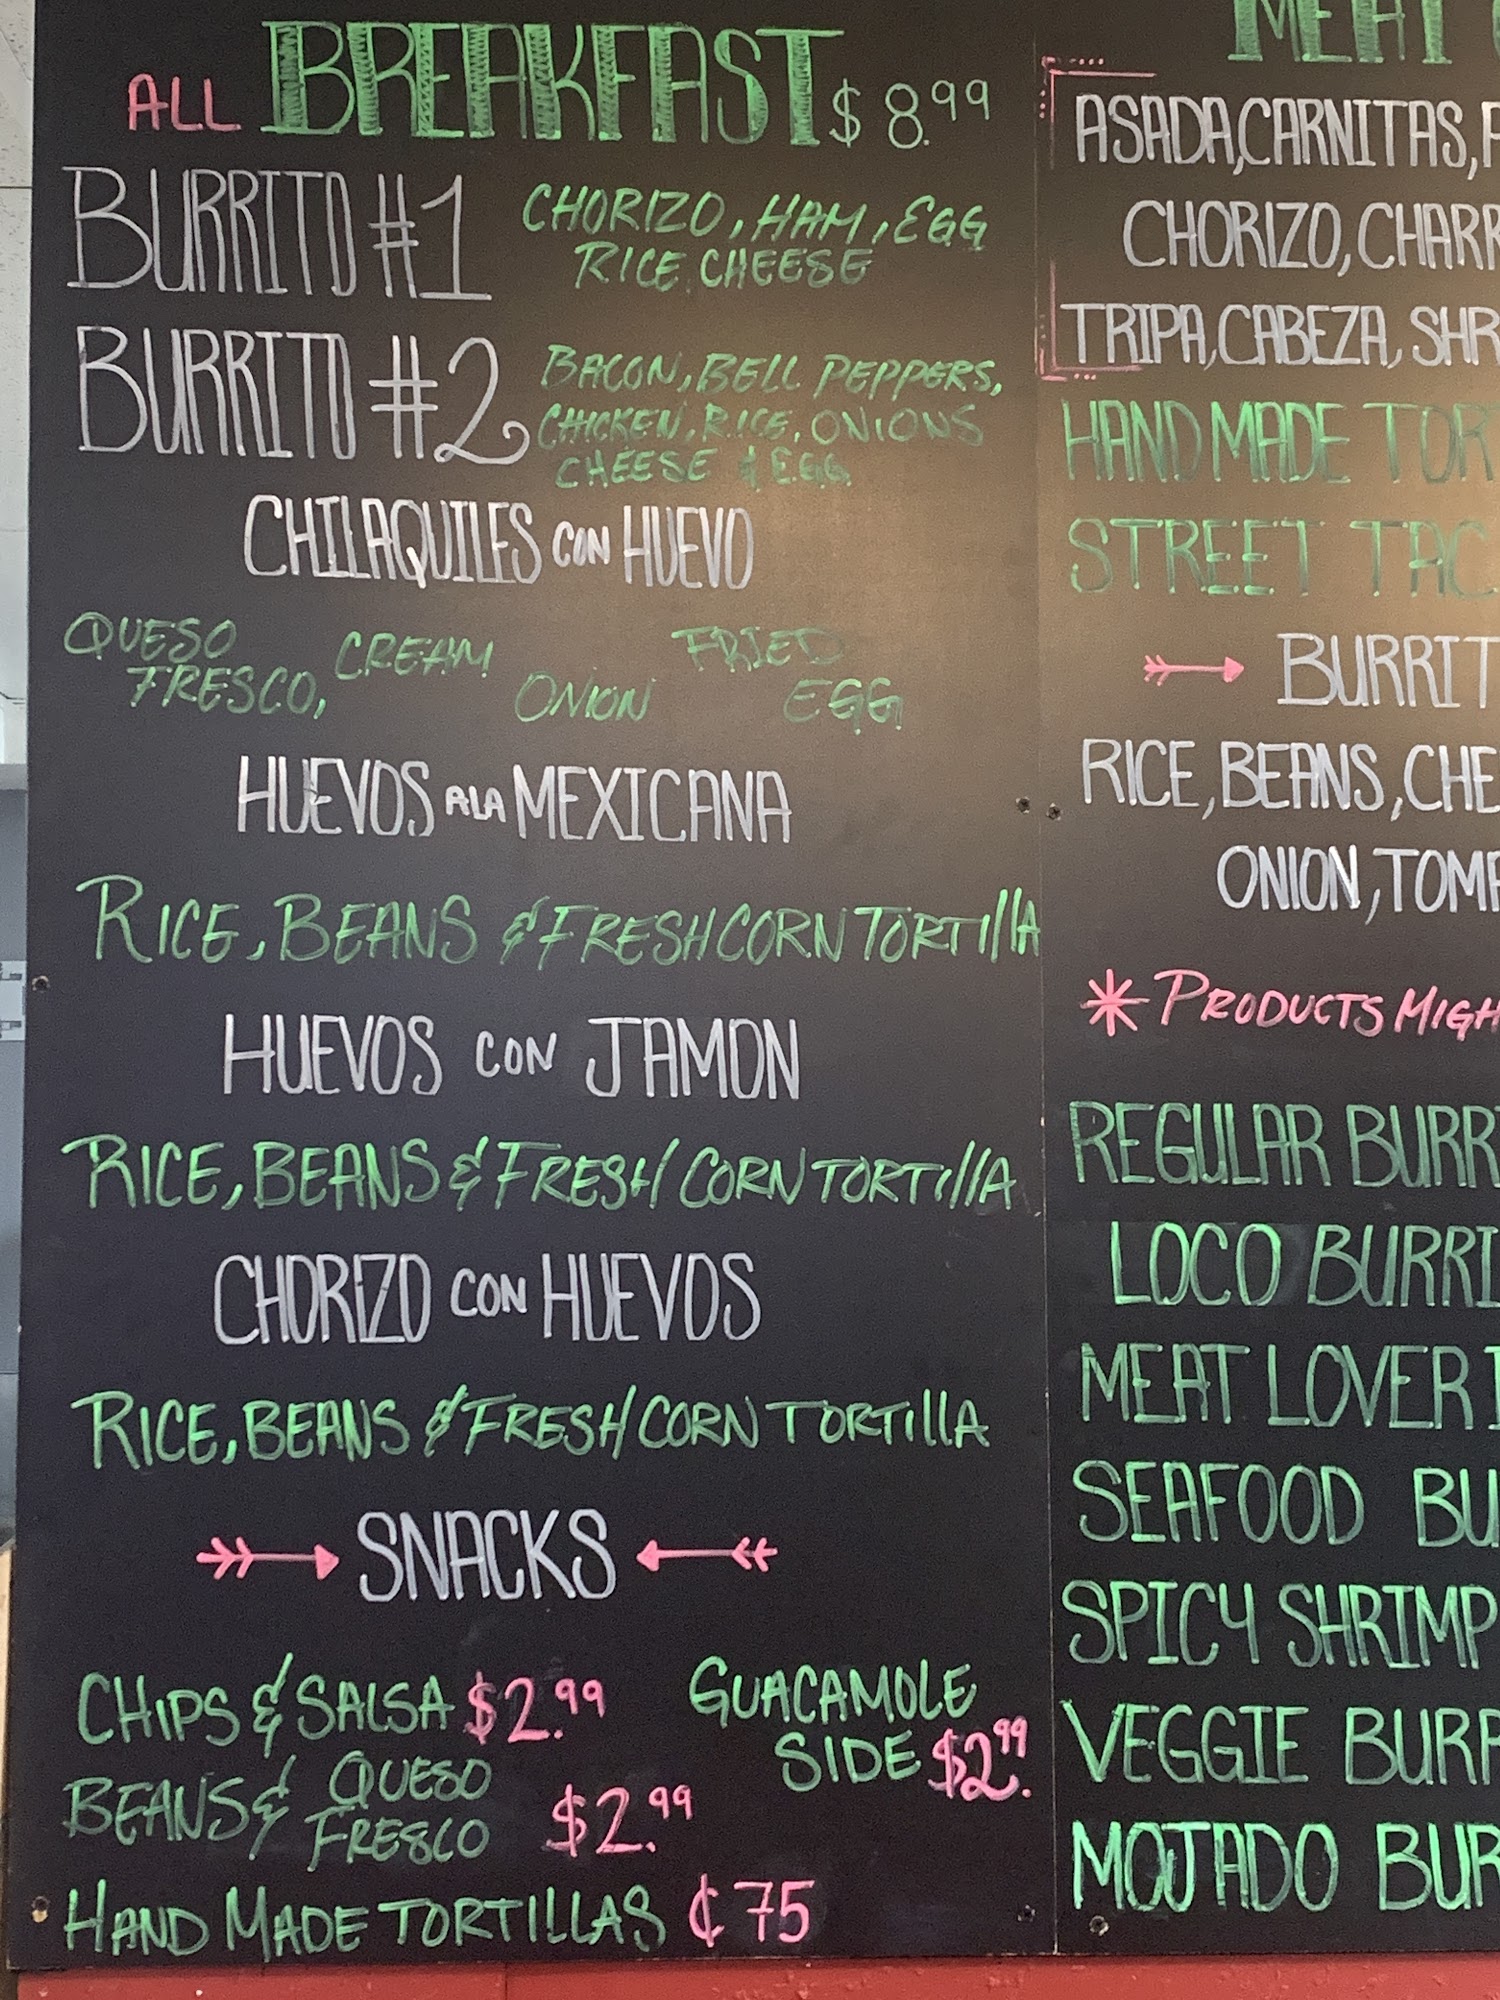 ALL BREAKFAST $8.99
BURRITO #1
CHORIZO, HAM, EGG
RICE, CHEESE
BURRITO #2
BACON, BELL PEPPERS,
CHICKEN, RICE, ONIONS
CHEESE & EGG
CHILAQUILES CON HUEVO
QUESO
FRESCO,
CREAM
ONION
FRIED
EGG
HUEVOS ALA MEXICANA
RICE, BEANS & FRESH CORN TORTILLA
HUEVOS CON JAMON
RICE, BEANS & FRESH CORN TORTILLA
CHORIZO CON HUEVOS
RICE, BEANS & FRESH CORN TORTILLA
SNACKS
CHIPS & SALSA $2.99
GUACAMOLE
SIDE $2.99
BEANS & QUESO
FRESCO $2.99
HAND MADE TORTILLAS ¢75
MEAT
ASADA, CARNITAS,
CHORIZO, CHARR
TRIPA, CABEZA, SHR
HAND MADE TOR
STREET TAC
BURRIT
RICE, BEANS, CHE
ONION, TOM
* PRODUCTS MIGH
REGULAR BURR
LOCO BURRI
MEAT LOVER
SEAFOOD BU
SPICY SHRIMP
VEGGIE BURR
MOJADO BUR